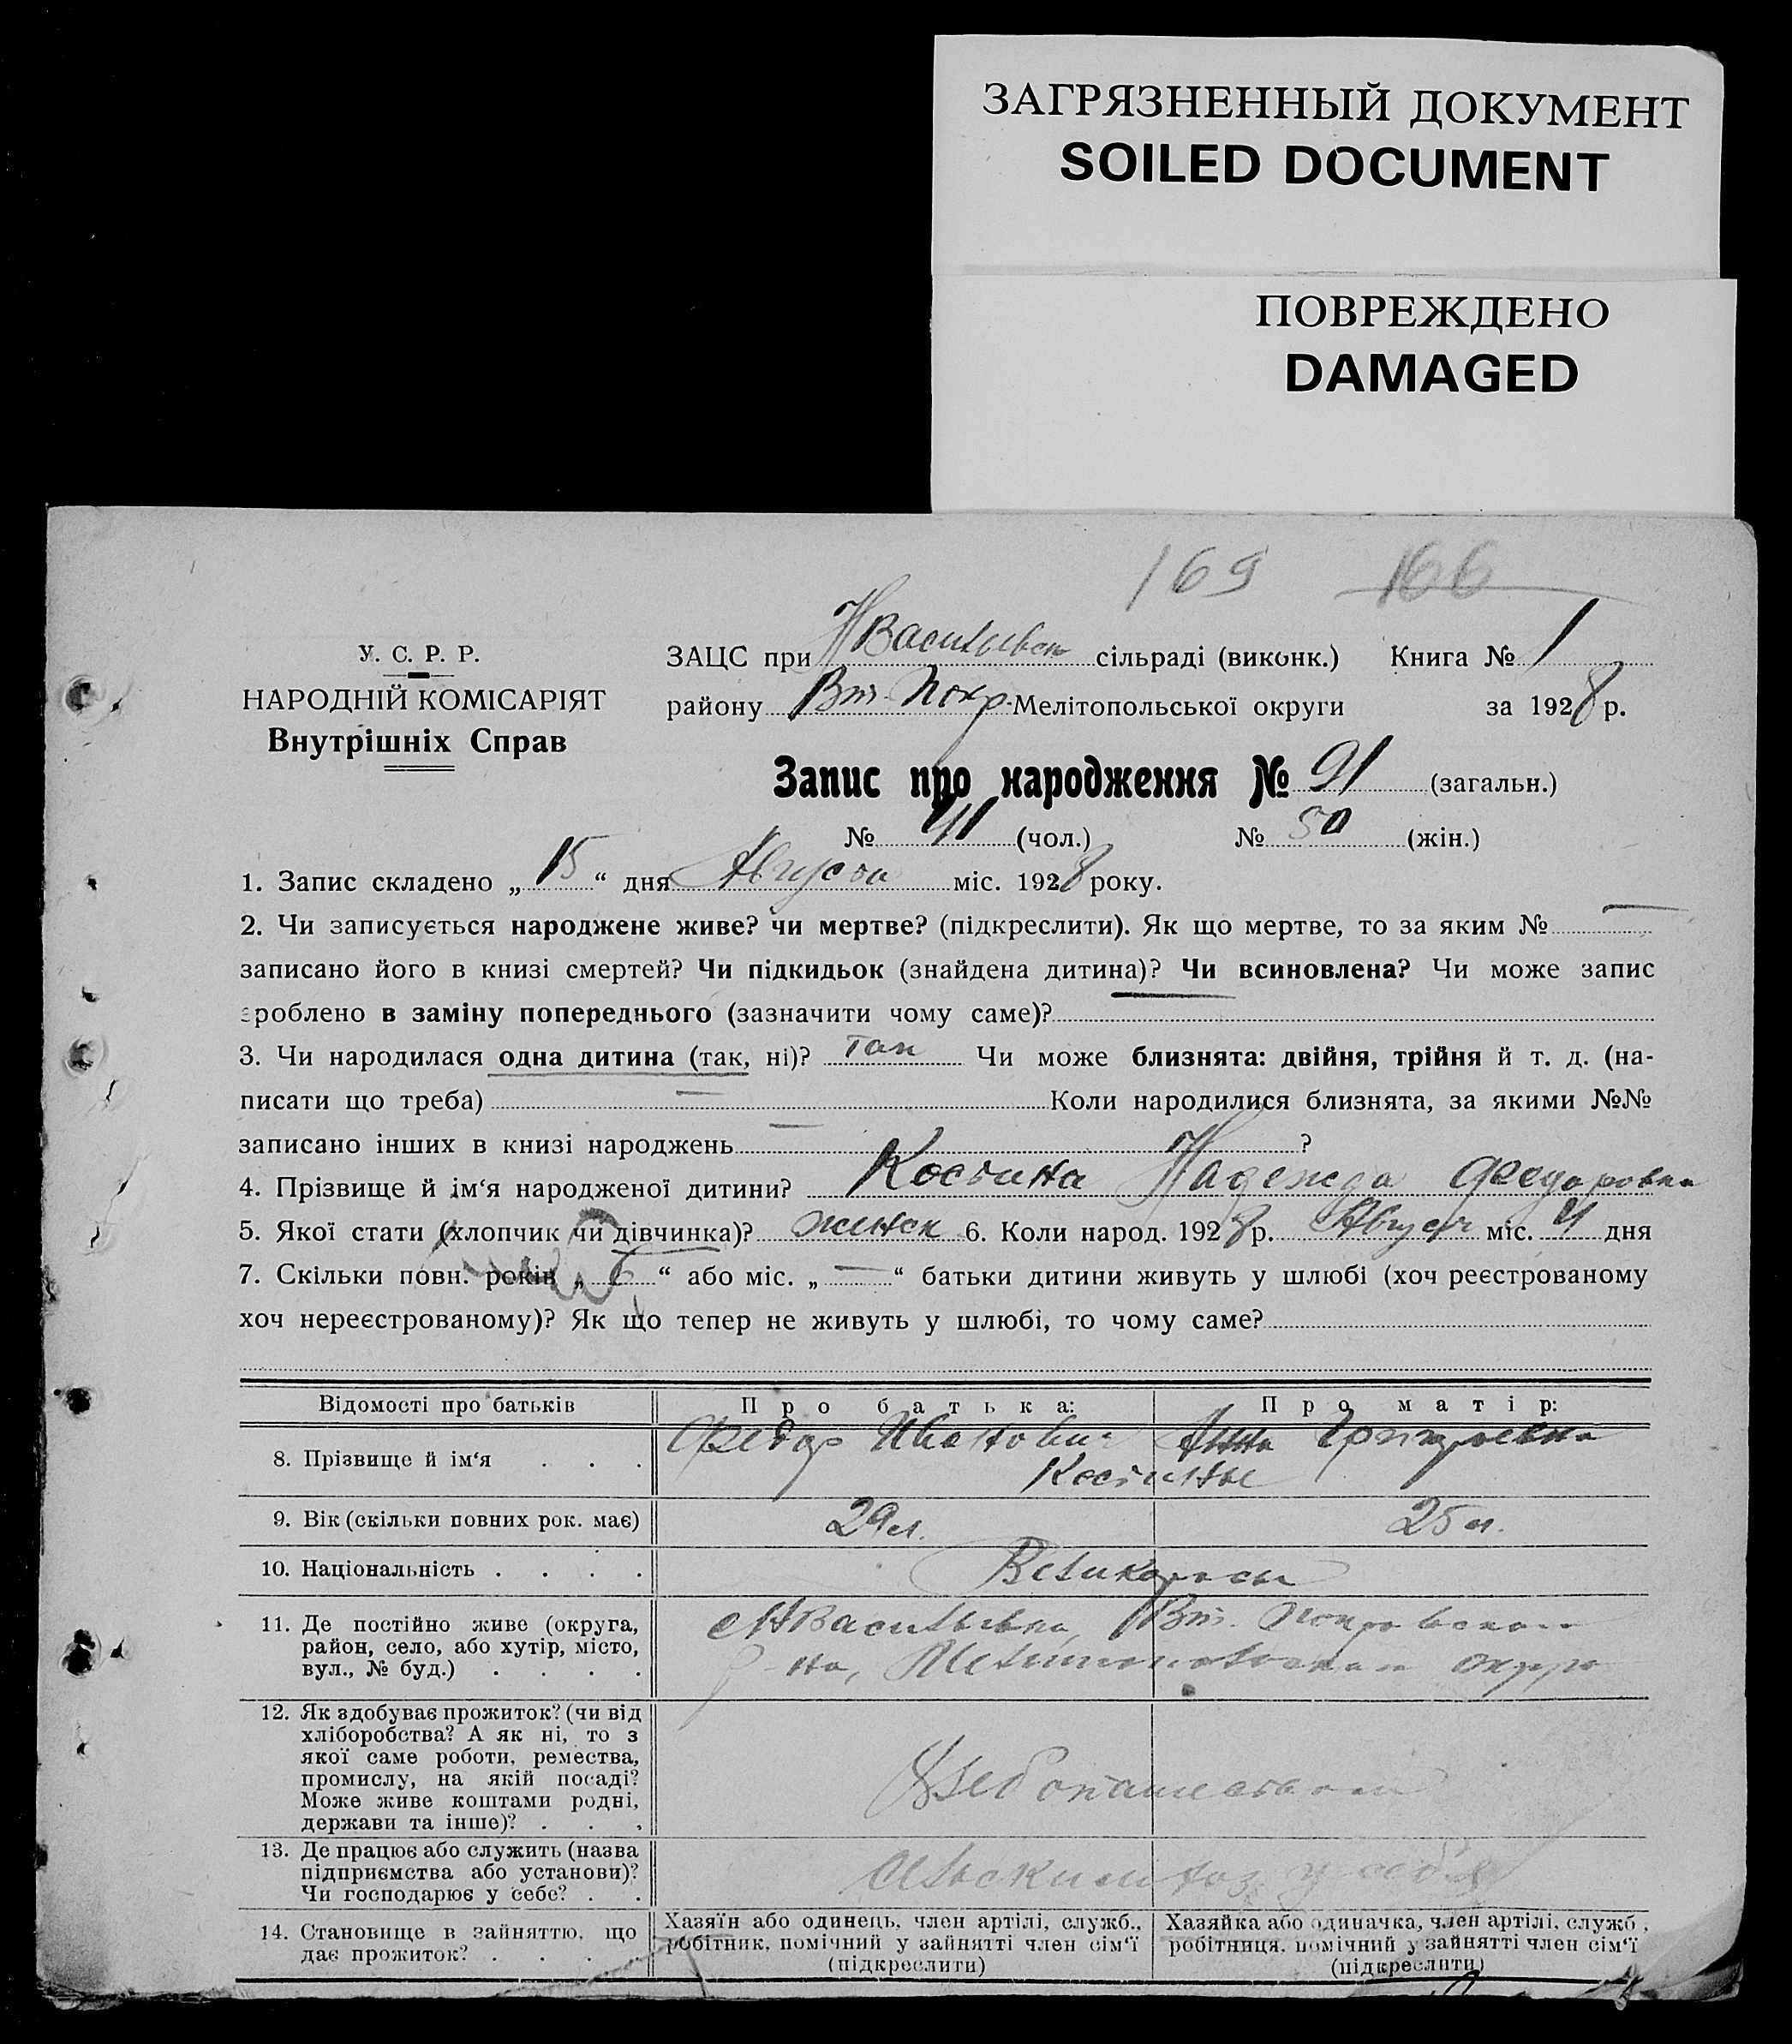 ЗАГРЯЗНЕННЫЙ ДОКУМЕНТ
SOILED DOCUMENT
ПОВРЕЖДЕНО
DAMAGED
169 166
У. С. Р. Р.
НАРОДНІЙ КОМІСАРІЯТ
Внутрішніх Справ
ЗАЦС при НВасильевск сільраді (виконк.) Книга № 1
району Вт. Покр. Мелітопольської округи за 1928 р.
Запис про народження № 91 (загальн.)
№ 41 (чол.) № 50 (жін.)
1. Запис складено „15“ дня Августа міс. 1928 року.
2. Чи записується народжене живе? чи мертве? (підкреслити). Як що мертве, то за яким № —
записано його в книзі смертей? Чи підкидьок (знайдена дитина)? Чи всиновлена? Чи може запис
зроблено в заміну попереднього (зазначити чому саме)?
3. Чи народилася одна дитина (так, ні)? так Чи може близнята: двійня, трійня й т. д. (на-
писати що треба) — Коли народилися близнята, за якими №№
записано інших в книзі народжень — ?
4. Прізвище й ім‘я народженої дитини? Костина Надежда Федоровна
5. Якої стати (хлопчик чи дівчинка)? женск 6. Коли народ. 1928 р. Август міс. 4 дня
7. Скільки повн. років „6“ або міс. „—“ батьки дитини живуть у шлюбі (хоч реєстрованому
хоч нереєстрованому)? Як що тепер не живуть у шлюбі, то чому саме?
Відомості про батьків Про батька: Про матір:
8. Прізвище й ім‘я . . . Федор Иванович Анна Григорьевна
Костины
9. Вік (скільки повних рок. має) 29 л. 25 л.
10. Національність . . . . Великороссы
11. Де постійно живе (округа, НВасильевка, Вт. Покровского
район, село, або хутір, місто, р-на, Мелитопольского округа
вул., № буд.) . . . .
12. Як здобуває прожиток? (чи від
хліборобства? А як ні, то з
якої саме роботи, ремества,
промислу, на якій посаді? Хлебопашеством
Може живе коштами родні,
держави та інше)? . . .
13. Де працює або служить (назва
підприємства або установи)? сельским хоз. у себя
Чи господарює у себе? . .
14. Становище в зайняттю, що Хазяїн або одинець, член артілі, служб., Хазяйка або одиначка, член артілі, служб.,
дає прожиток? . . . робітник, помічний у зайнятті член сім‘ї робітниця, помічний у зайнятті член сім‘ї
(підкреслити) (підкреслити)